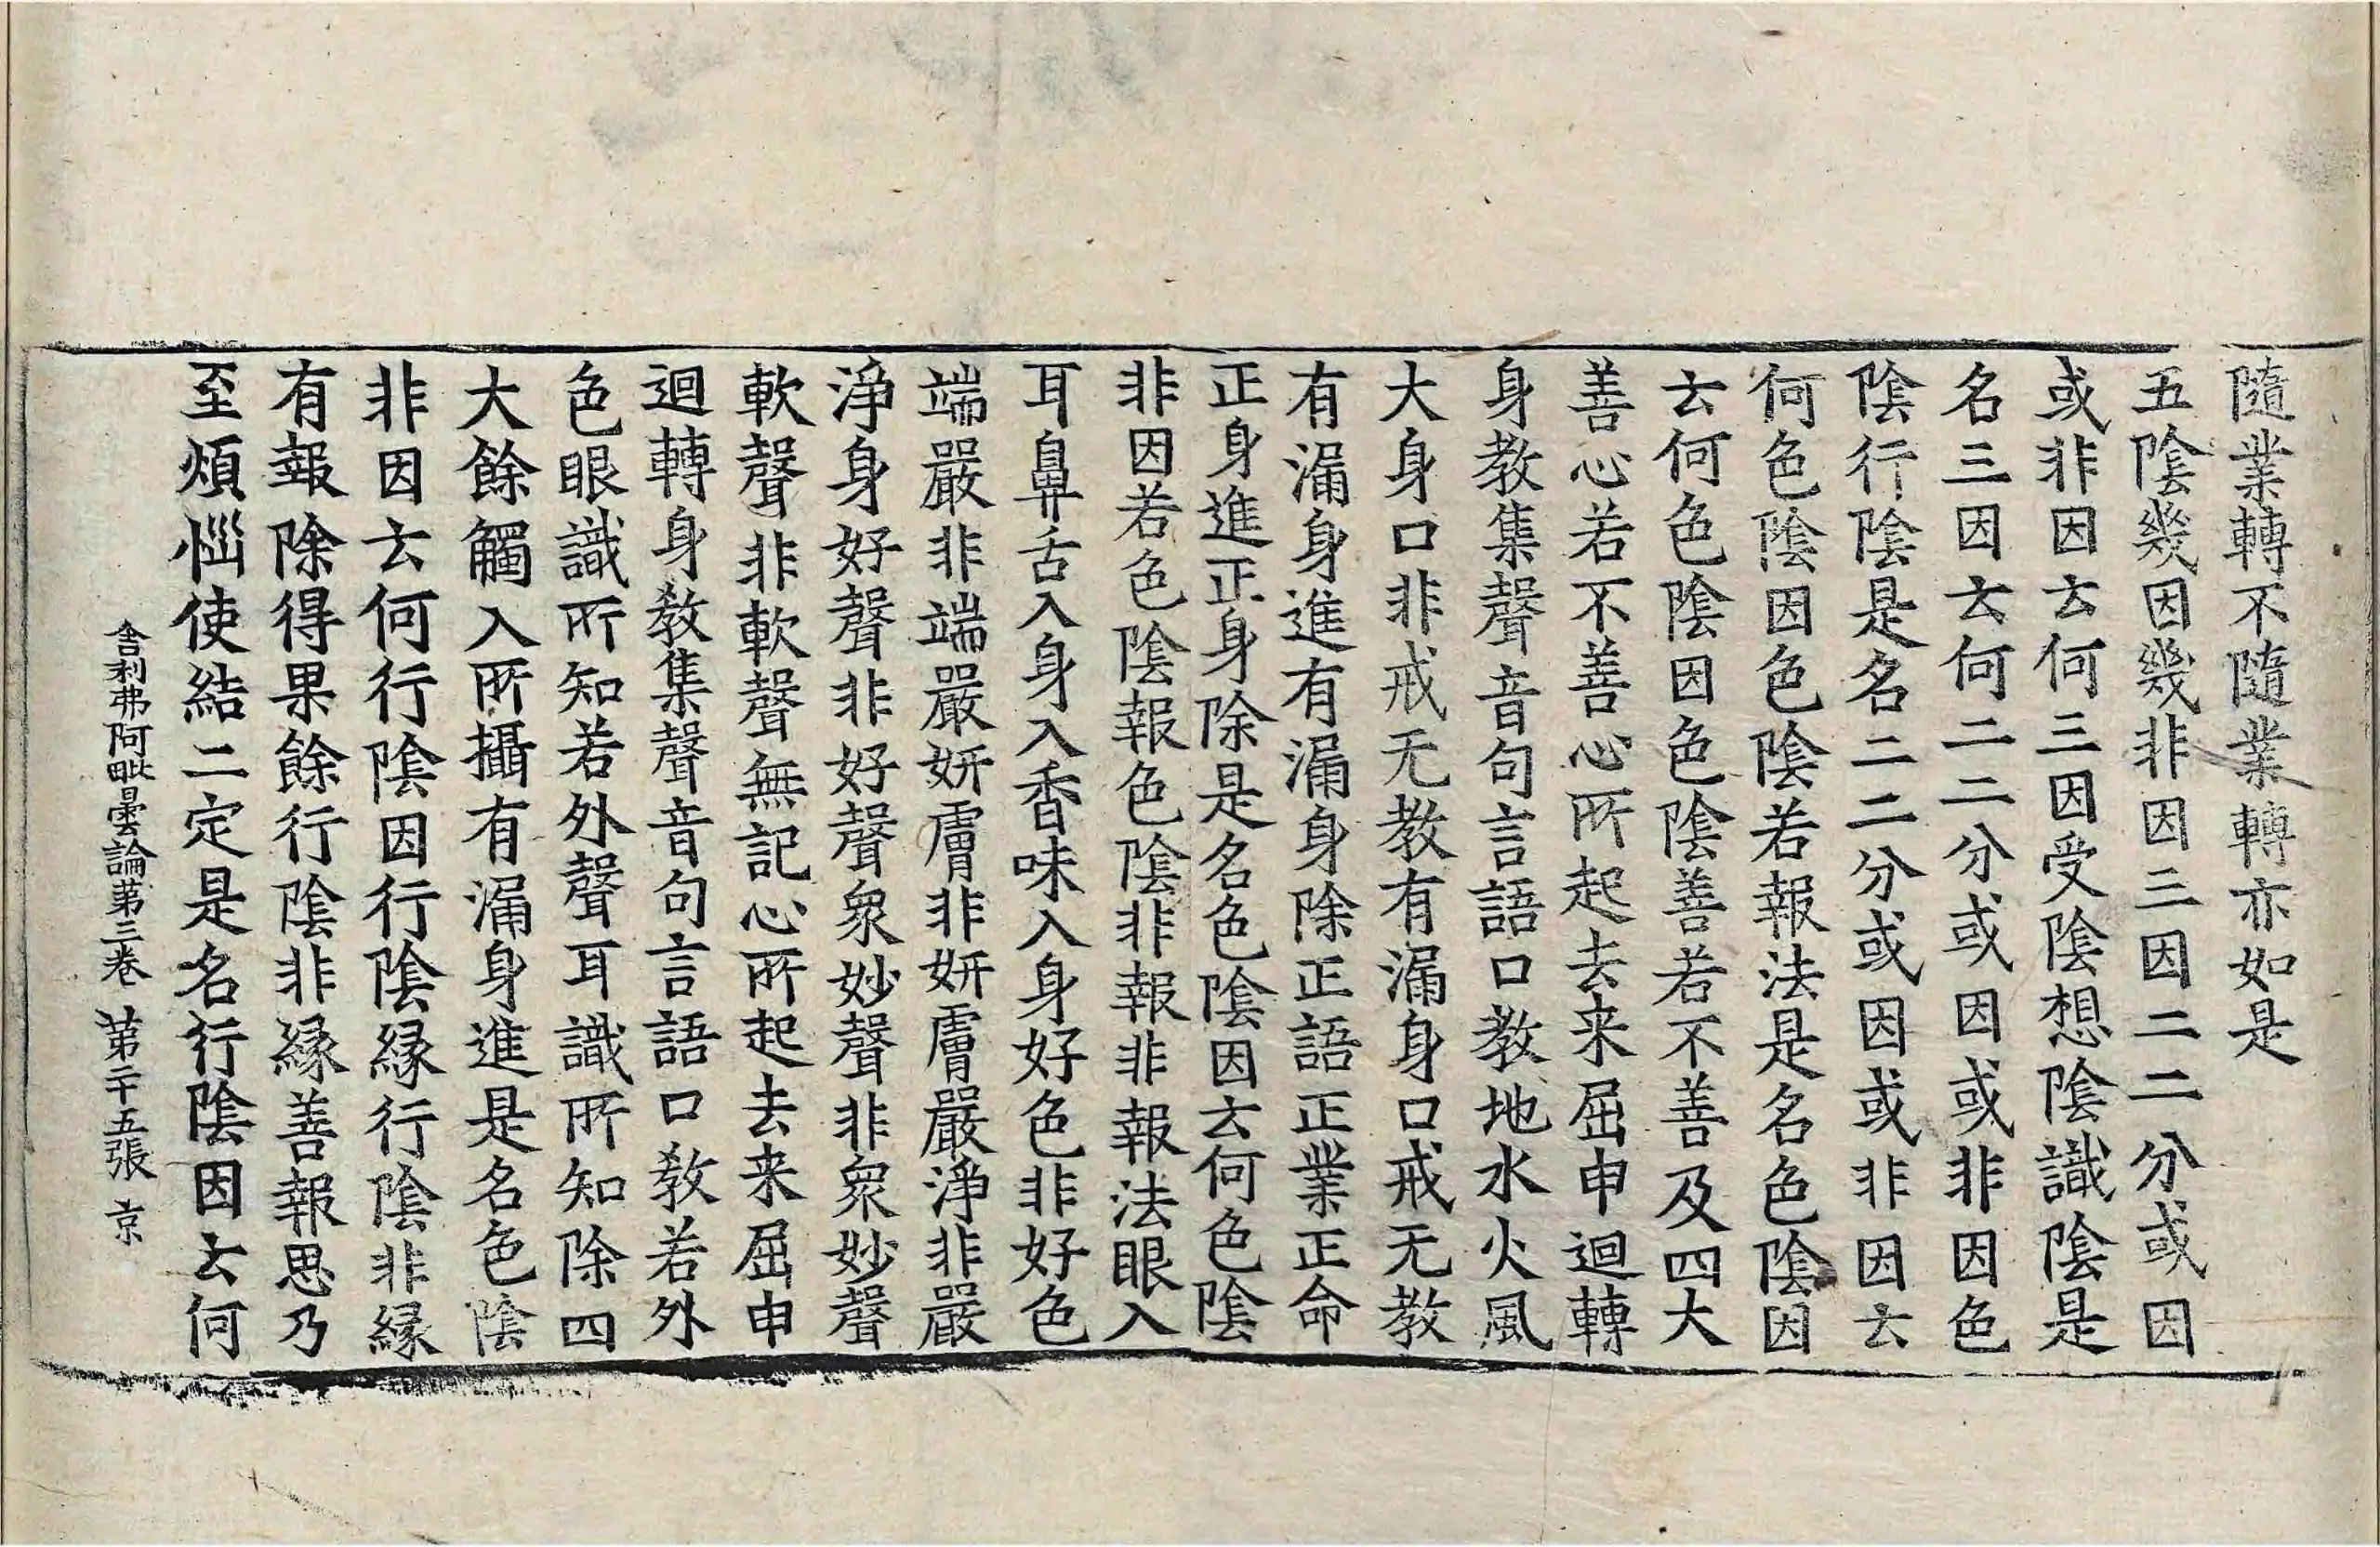 隨業轉不隨業轉亦如是
五陰幾因幾非因三因二二分或因
或非因云何三因受陰想陰識陰是
名三因云何二二分或因或非因色
陰行陰是名二二分或因或非因云
何色陰因色陰若報法是名色陰因
云何色陰因色陰善若不善及四大
善心若不善心所起去来屈申迴轉
身教集聲音句言語口教地水火風
大身口非戒无教有漏身口戒无教
有漏身進有漏身除正語正業正命
正身進正身除是名色陰因云何色陰
非因若色陰報色陰非報非報法眼入
耳鼻舌入身入香味入身好色非好色
端嚴非端嚴妍膚非妍膚嚴淨非嚴
淨身好聲非好聲衆妙聲非衆妙聲
軟聲非軟聲無記心所起去来屈申
迴轉身教集聲音句言語口教若外
色眼識所知若外聲耳識所知除四
大餘觸入所攝有漏身進是名色陰
非因云何行陰因行陰緣行陰非緣
有報除得果餘行陰非緣善報思乃
至煩惱使結二定是名行陰因云何
舍利弗阿毗曇論第三卷 第二十五張 京